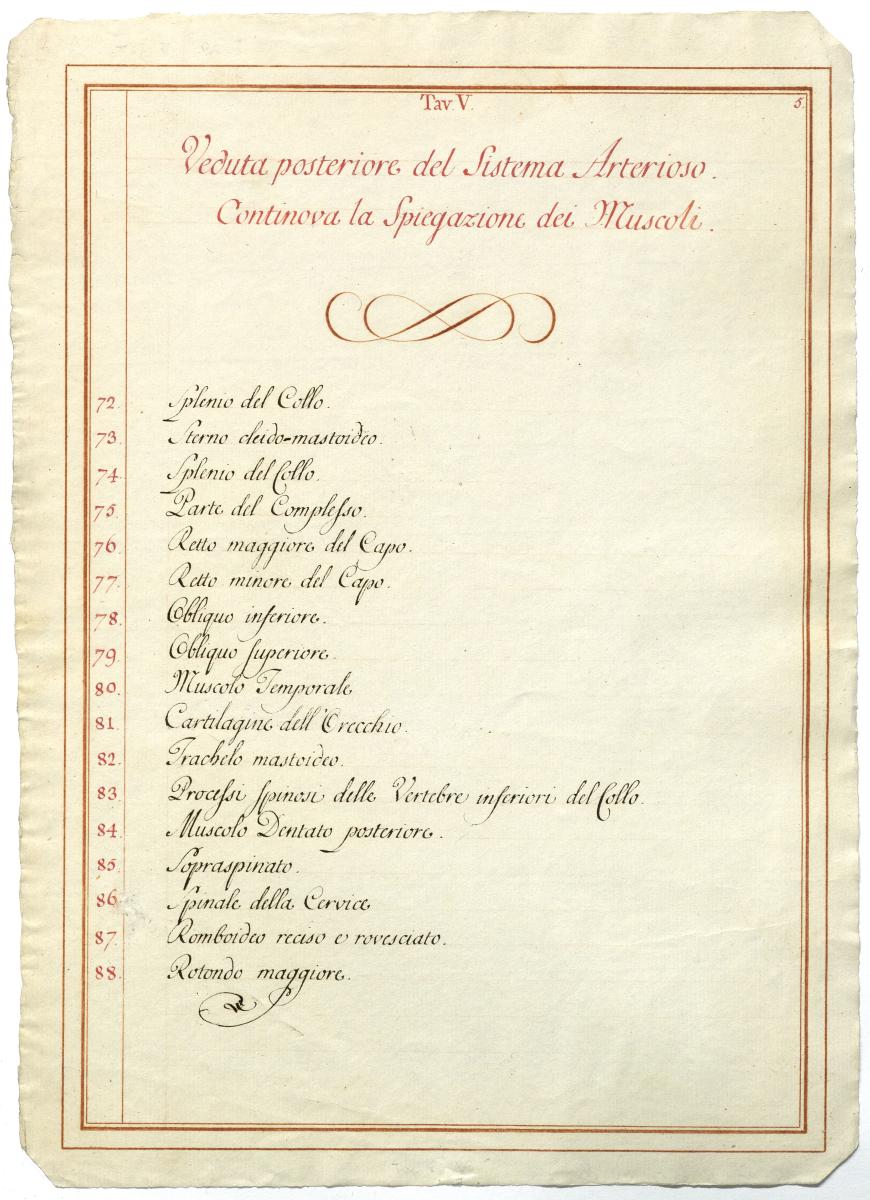 Tav. V.
5.
Veduta posteriore del Sistema Arterioso.
Continova la Spiegazione dei Muscoli.
72. Splenio del Collo.
73. Sterno cleido-mastoideo.
74. Splenio del Collo.
75. Parte del Complesso.
76. Retto maggiore del Capo.
77. Retto minore del Capo.
78. Obliquo inferiore.
79. Obliquo superiore.
80. Muscolo Temporale
81. Cartilagine dell'Orecchio.
82. Trachelo mastoideo.
83. Processi spinosi delle Vertebre inferiori del Collo.
84. Muscolo Dentato posteriore.
85. Sopraspinato.
86. Spinale della Cervice
87. Romboideo reciso e rovesciato.
88. Rotondo maggiore.